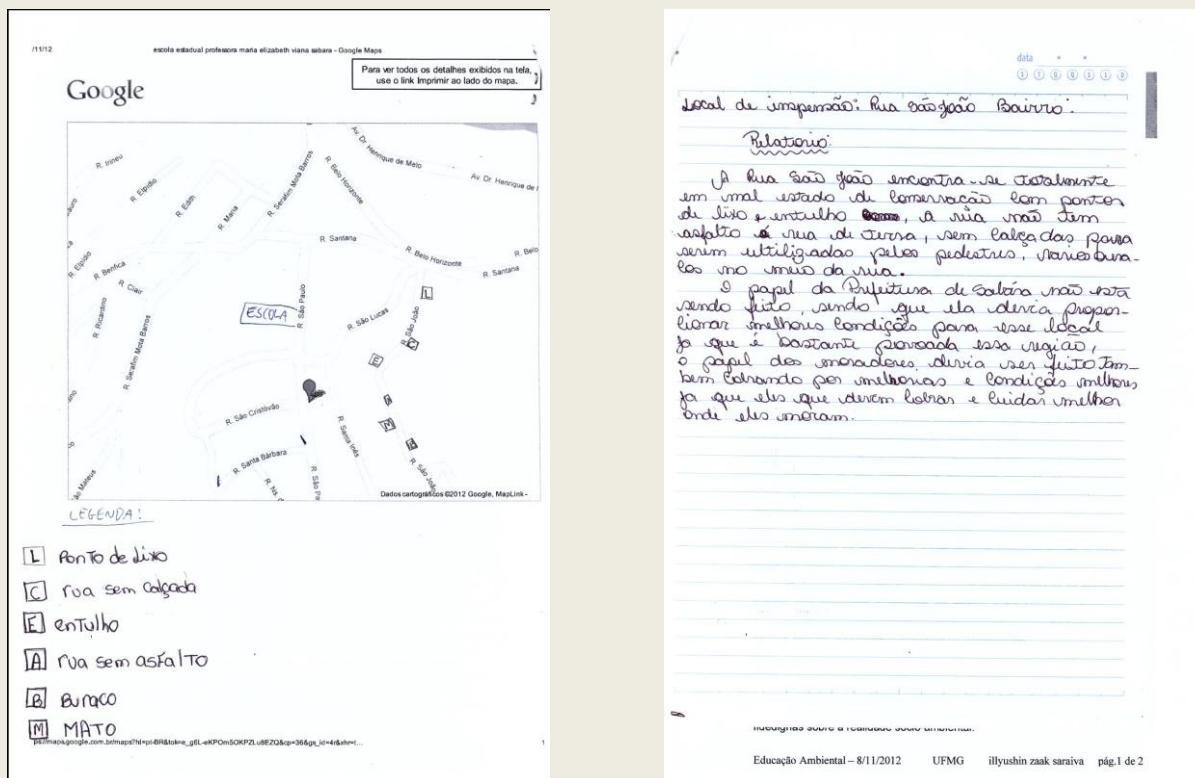 /11/12
escola estadual professora maria elizabeth viana sabara - Google Maps
Para ver todos os detalhes exibidos na tela,
use o link Imprimir ao lado do mapa.
Google
R. Irineu
R. Elpidio
R. Edith
R. Maria
R. Serafim Mota Barros
R. Belo Horizonte
Av. Dr. Henrique de Melo
Av. Dr. Henrique de
R. Santana
R. Belo Horizonte
R. Belo
R. Santana
R. Elpidio
R. Benfica
R. Clair
R. Ricardino
R. Serafim Mota Barros
ESCOLA
R. São Paulo
R. São Lucas
R. São João
L
C
E
A
M
B
R. São Cristóvão
R. Santa Bárbara
R. Santa Inês
R. São João
R. São Pa
R. Ns.
ão Mateus
Dados cartográficos ©2012 Google, MapLink -
LEGENDA:
L Ponto de Lixo
C rua sem calçada
E enTulho
A rua sem asfalTo
B Buraco
M MATO
1
data
Local de inspensão: Rua São João Bairro:
Relatorio:
A Rua São João encontra-se totalmente
em mal estado de Conservação com pontos
de lixo e entulho, a rua não tem
asfalto é rua de terra, sem calçadas para
serem ultilizadas pelos pedestris, varios bura-
cos no meio da rua.
O papel da Prefeitura de Sabára não esta
sendo feito, sendo que ela devria propor-
cionar melhores condições para esse local
ja que é bastante povoada essa região,
o papel dos moradores divia ser feito tam-
bem cobrando por melhorias e condições melhores
ja que eles que devem cobrar e cuidar melhor
onde eles moram.
fidedignas sobre a realidade sócio ambiental.
Educação Ambiental – 8/11/2012 UFMG illyushin zaak saraiva pág.1 de 2